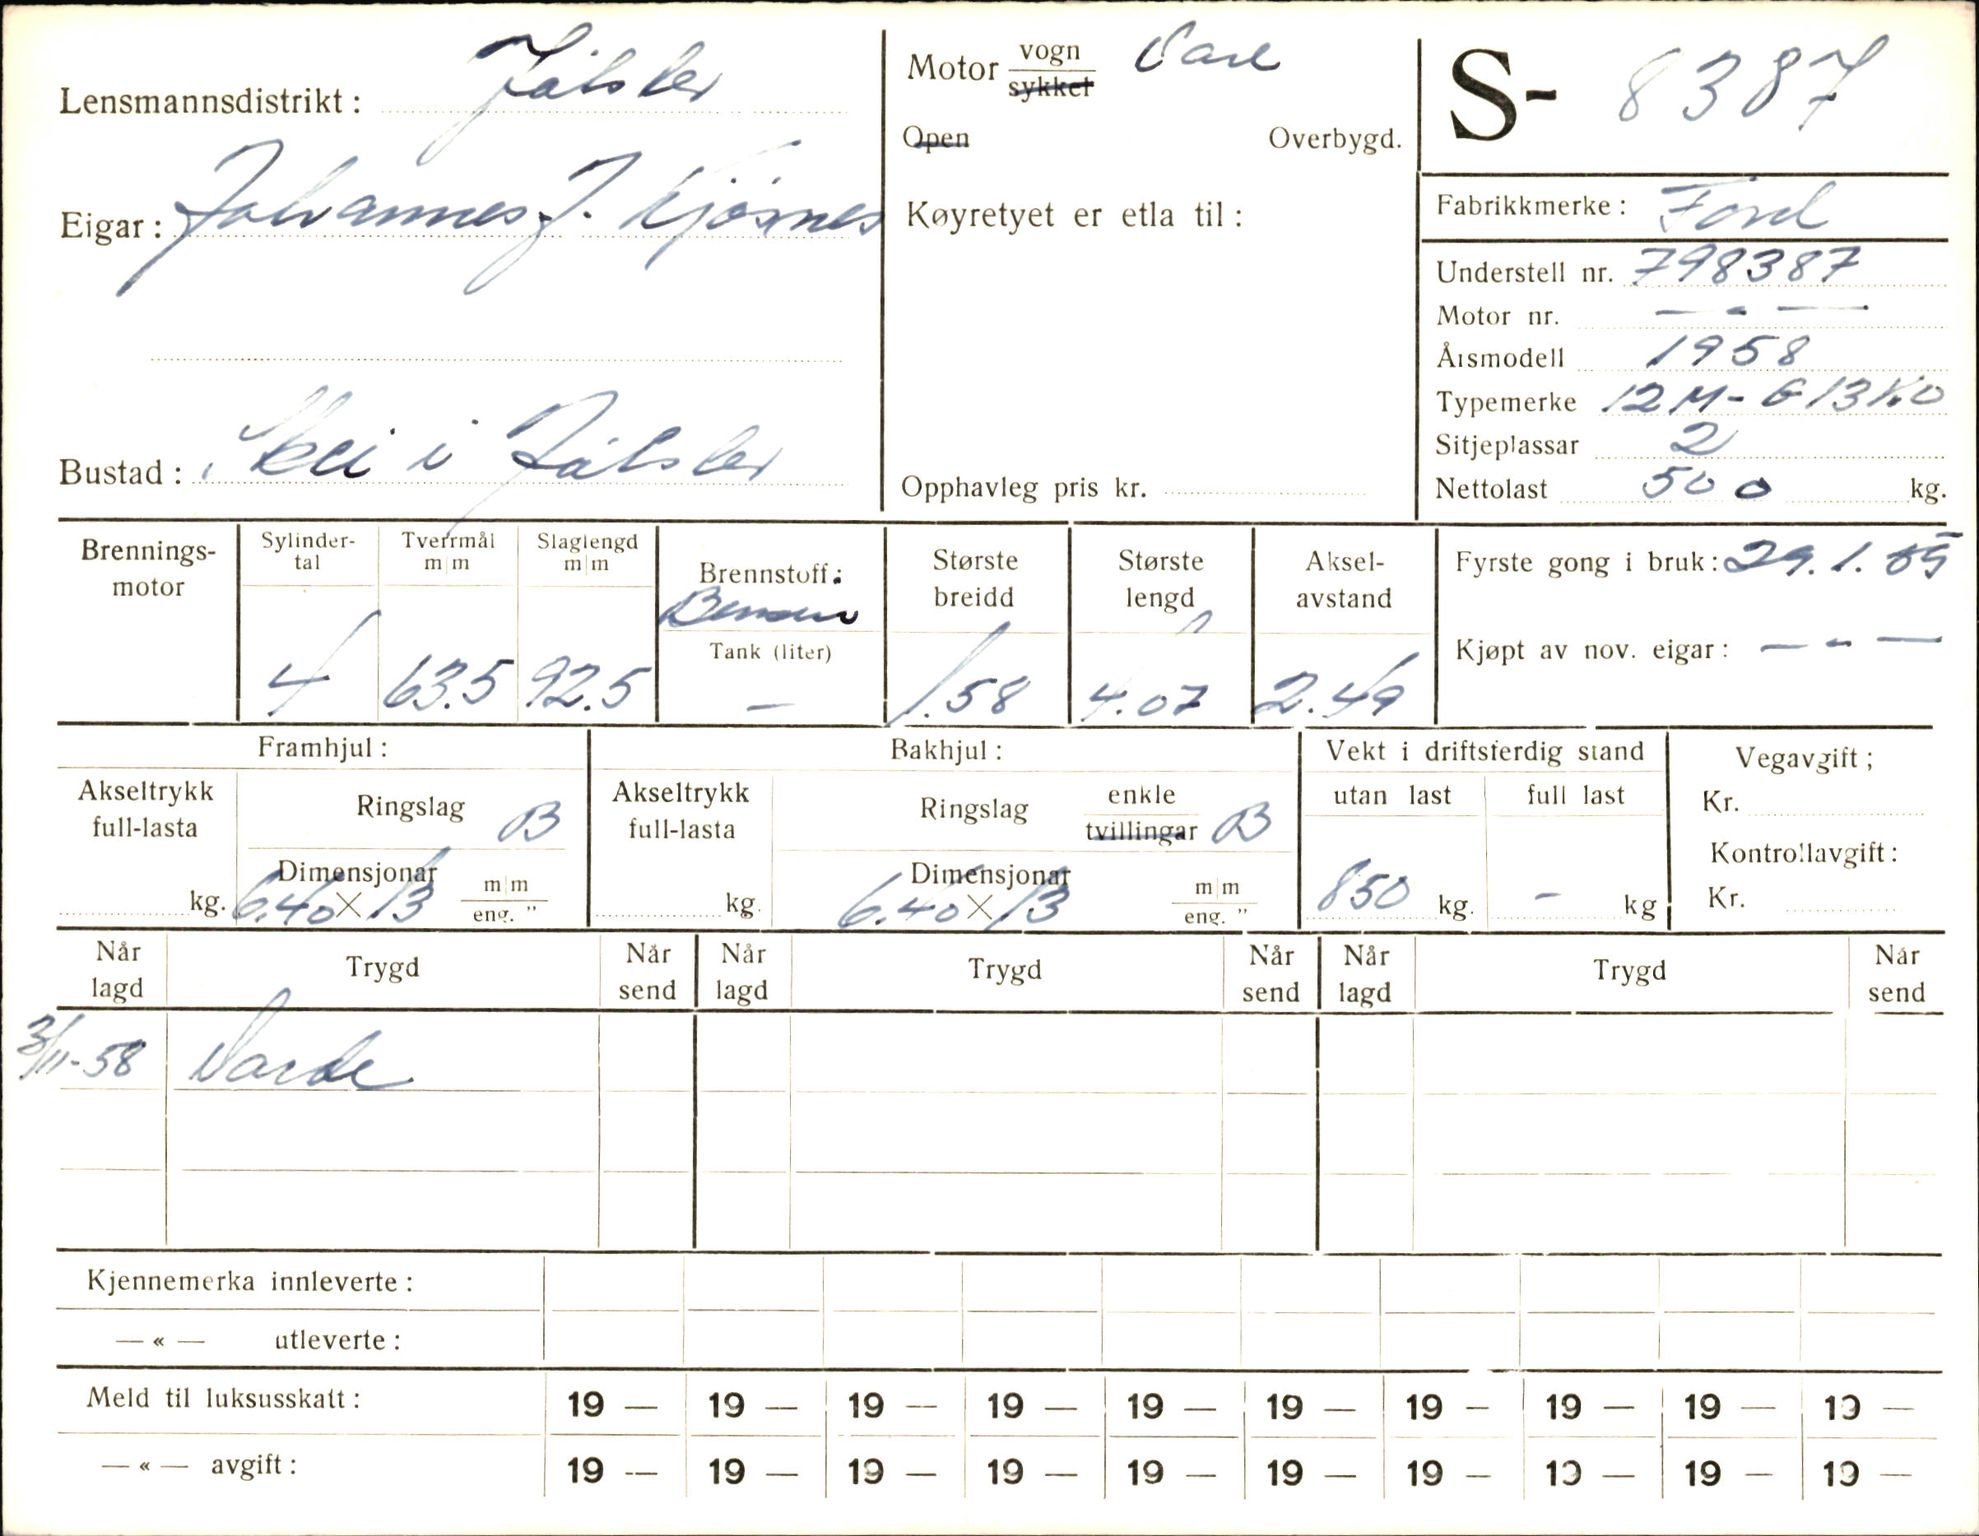 Lensmannsdistrikt: Jølster
Eigar: Johannes J. Kjøsnes
Bustad: Skei i Jølster
Motor vogn Vare
sykkel
Open Overbygd.
Køyretyet er etla til:
Opphavleg pris kr.
S- 8387
Fabrikkmerke: Ford
Understell nr. 798387
Motor nr. — " —
Årsmodell 1958
Typemerke 12 M - G13
Sitjeplassar 2
Nettolast 500 kg.
Brennings-
motor
Sylinder-
tal
4
Tverrmål
m|m
63.5
Slaglengd
m|m
92.5
Brennstoff:
Bensin
Tank (liter)
—
Største
breidd
1.58
Største
lengd
4.07
Aksel-
avstand
2.49
Fyrste gong i bruk: 29.1.
Kjøpt av nov. eigar: — " —
Framhjul:
Akseltrykk
full-lasta
kg.
Ringslag B
Dimensjonar
6.40 × 13 m|m
eng. "
Bakhjul:
Akseltrykk
full-lasta
kg.
Ringslag enkle
tvillingar B
Dimensjonar
6.40 × 13 m|m
eng. "
Vekt i driftsferdig stand
utan last full last
850 kg. - kg
Vegavgift;
Kr.
Kontrollavgift:
Kr.
Når
lagd Trygd Når
send Når
lagd Trygd Når
send Når
lagd Trygd Når
send
3/11-58 Varde
Kjennemerka innleverte:
— « — utleverte:
Meld til luksusskatt: 19 — 19 — 19 — 19 — 19 — 19 — 19 — 19 — 19 — 19 —
— « — avgift: 19 — 19 — 19 — 19 — 19 — 19 — 19 — 19 — 19 — 19 —